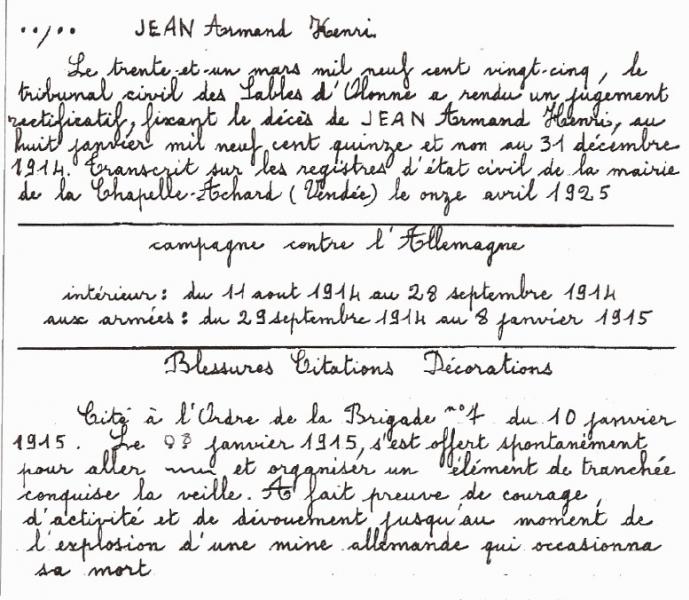 ../.. JEAN Armand Henri.
Le trente-et-un mars mil neuf cent vingt-cinq, le
tribunal civil des Sables d'Olonne a rendu un jugement
rectificatif, fixant le décès de JEAN Armand Henri, au
huit janvier mil neuf cent quinze et non au 31 décembre
1914. Transcrit sur les registres d'état civil de la mairie
de la Chapelle-Achard (Vendée) le onze avril 1925
campagne contre l'Allemagne
intérieur : du 11 aout 1914 au 28 septembre 1914
aux armées : du 29 septembre 1914 au 8 janvier 1915
Blessures Citations Décorations
Cité à l'Ordre de la Brigade n°7 du 10 janvier
1915. Le janvier 1915, s'est offert spontanément
pour aller et organiser un élément de tranchée
conquise la veille. A fait preuve de courage,
d'activité et de dévouement jusqu'au moment de
l'explosion d'une mine allemande qui occasionna
sa mort